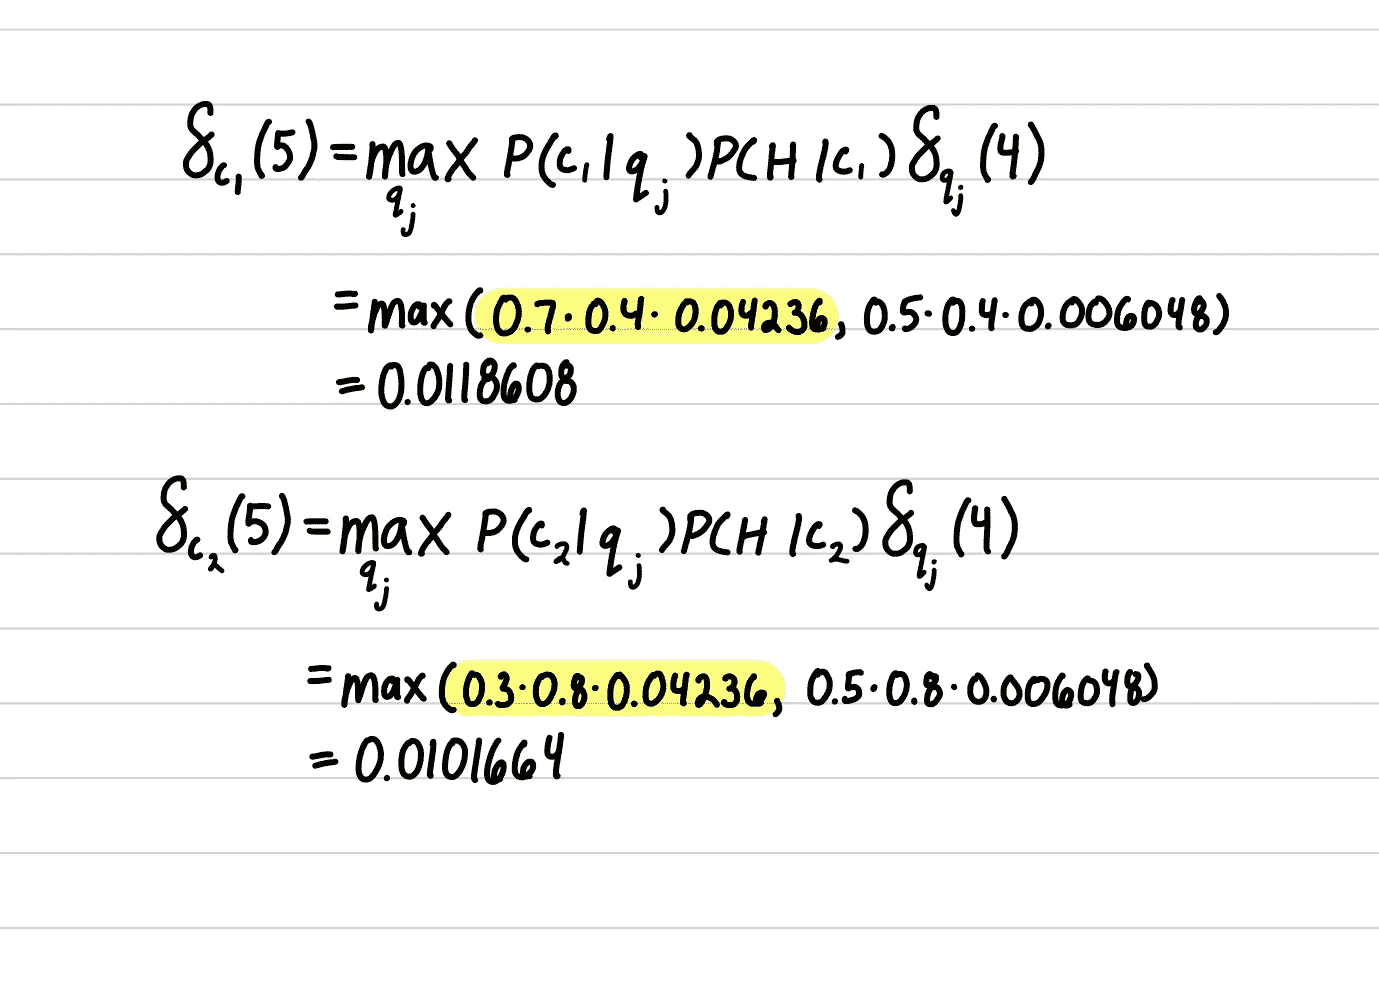 δ_{c₁}(5) = max_{q_j} P(c₁|q_j)P(H|c₁)δ_{q_j}(4)
= max(0.7·0.4·0.04236, 0.5·0.4·0.006048)
= 0.0118608
δ_{c₂}(5) = max_{q_j} P(c₂|q_j)P(H|c₂)δ_{q_j}(4)
= max(0.3·0.8·0.04236, 0.5·0.8·0.006048)
= 0.0101664